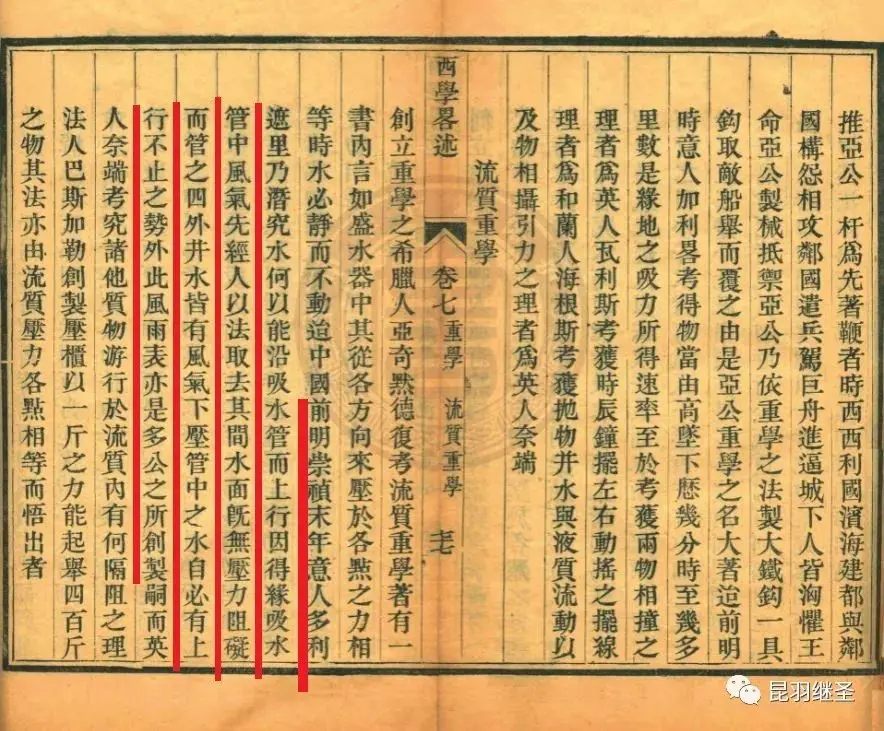 推亞公一杆爲先著鞭者時西西利國濱海建都與鄰
國構怨相攻鄰國遣兵駕巨舟進逼城下人皆洶懼王
命亞公製械抵禦亞公乃依重學之法製大鐵鈎一具
鈎取敵船舉而覆之由是亞公重學之名大著迨前明
時意人加利畧考得物當由高墜下歷幾分時至幾多
里數是緣地之吸力所得速率至於考獲兩物相撞之
理者爲英人瓦利斯考獲時辰鐘擺左右動搖之擺線
理者爲和蘭人海根斯考獲拋物并水與液質流動以
及物相攝引力之理者爲英人奈端
流質重學
西學畧述
卷七 重學 流質重學
創立重學之希臘人亞奇默德復考流質重學著有一
書內言如盛水器中其從各方向來壓於各點之力相
等時水必靜而不動迨中國前明崇禎末年意人多利
遮里乃潛究水何以能沿吸水管而上行因得緣吸水
管中風氣先經人以法取去其間水面旣無壓力阻礙
而管之四外井水皆有風氣下壓管中之水自必有上
行不止之勢外此風雨表亦是多公之所創製嗣而英
人奈端考究諸他質物游行於流質內有何隔阻之理
法人巴斯加勒創製壓櫃以一斤之力能起舉四百斤
之物其法亦由流質壓力各點相等而悟出者
昆羽继圣